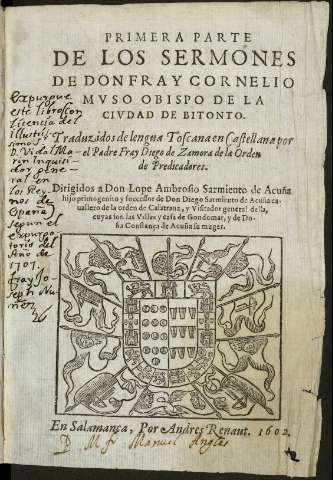 PRIMERA PARTE
DE LOS SERMONES
DE DON FRAY CORNELIO
MVSO OBISPO DE LA
CIVDAD DE BITONTO.
Traduzidos de lengua Toscana en Castellana por
el Padre Fray Diego de Zamora de la Orden
de Predicadores.
Dirigidos a Don Lope Ambrosio Sarmiento de Acuña
hijo primogenito y successor de Don Diego Sarmiento de Acuña ca-
uallero de la orden de Calatraua, y Visitador general della,
cuyas son las Villas y casa de Gondomar, y de Do-
ña Constança de Acuña su muger.
Expurgue
este libro con
licencia del
Illustris
simo Sr
D. Vidal Ma
rin Inquisi
dor gene
ral en
los Rey
nos de
España
segun el
expurga
torio del
Año de
1707.
fray Jo
seph Nu
ñez
En Salamança, Por Andres Renaut. 1602.
D. M. fr. Manuel Angles